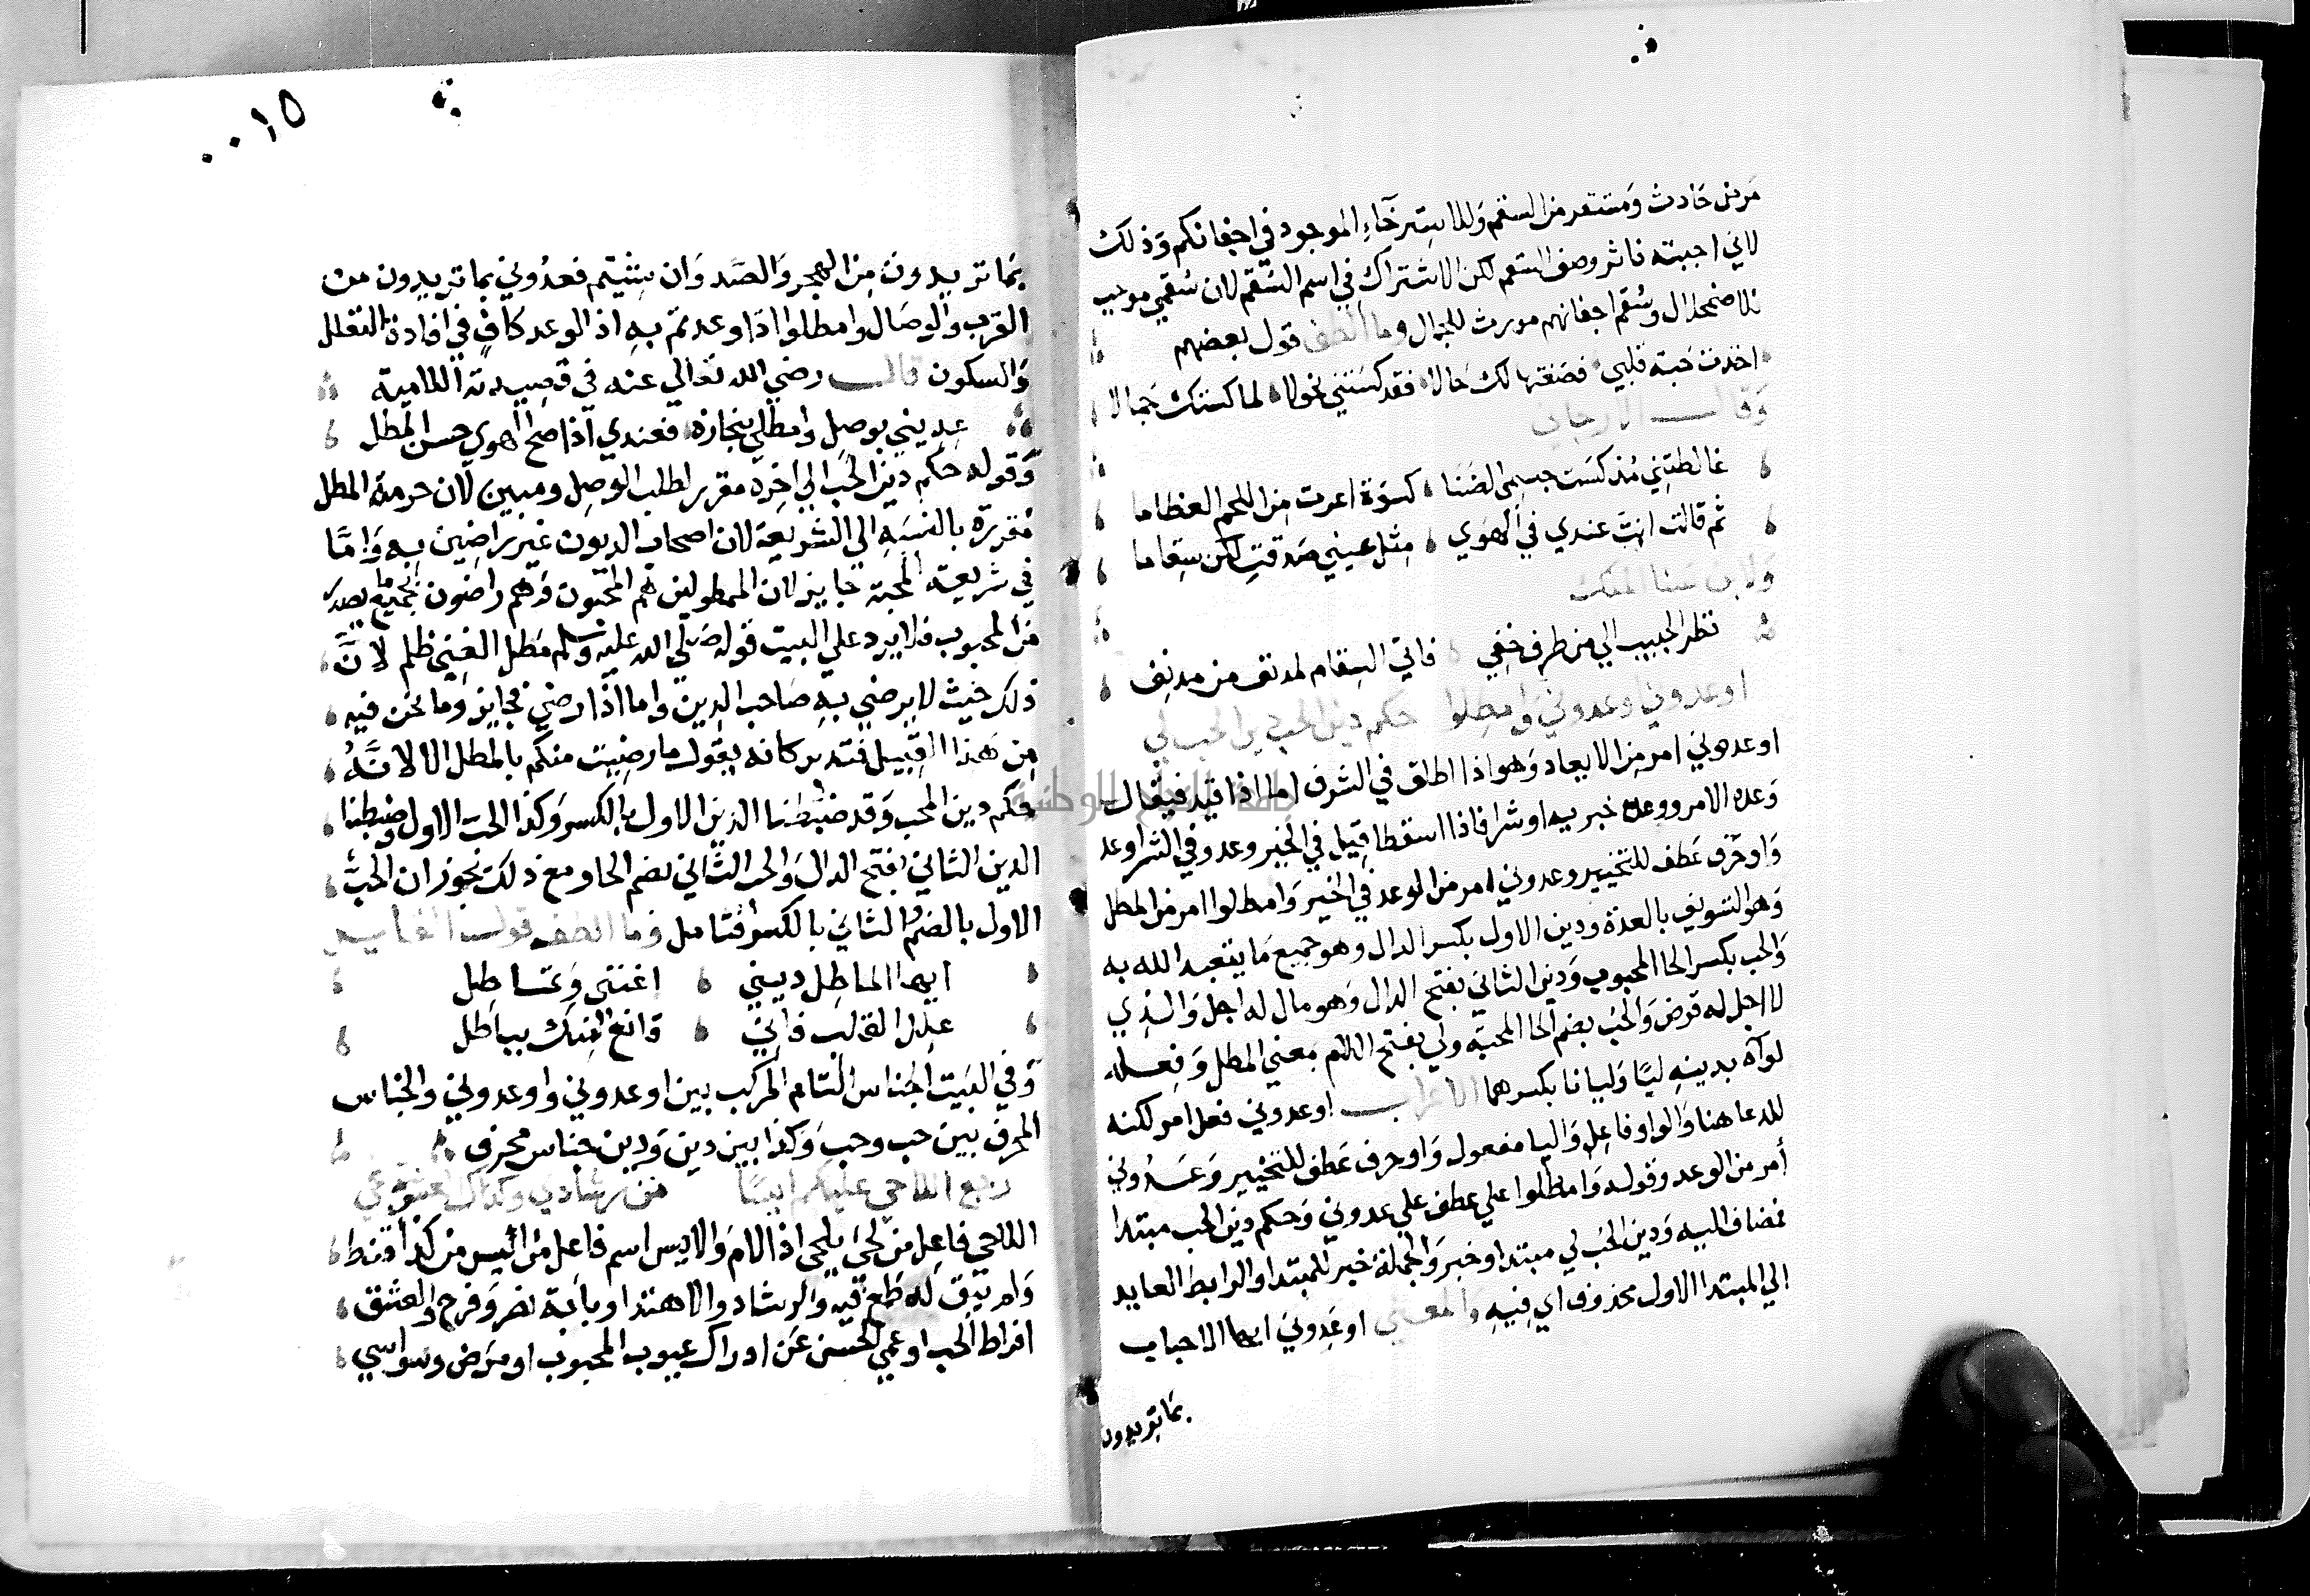 مرض حادث ومستعد من السقم وللاسترخاء الموجود في اجفانكم وذلك
لاني احببته فاثر وصف السقم لكن الاشتراك في اسم السقم لان سقمي موجب
للاضمحلال وسقم اجفانهم مورث للجمال وما الطف قول بعضهم
اخذت حبة قلبي فصغتها لك خالا فقد كستني نحولا لما كستك جمالا
وقال الارجاني
غالطتني مذ كست جسمي الضنا كسوة اعرت من اللحم العظاما
ثم قالت انت عندي في الهوي مثل عيني صدقت لكن سقاما
ولابن سنا الملك
نظر الحبيب الي من طرف خفي فاتي السقام لمدنف من مدنف
اوعدوني وعدوني وامطلوا حكم دين الحب دين الحب لي
اوعدوني امر من الايعاد وهو اذا اطلق في الشر ف اما اذا قيد فيقال
وعده الامر ووعده خبر به او شرا فاذا اسقطا قيل في الخير وعد وفي الشر اوعد
واو حرف عطف للتخيير وعدوني امر من الوعد في الخير وامطلوا امر من المطل
وهو التسويف بالعدة ودين الاول بكسر الدال وهو جميع ما يتعبد الله به
والحب بكسر الحا المحبوب ودين الثاني بفتح الدال وهو مال له اجل والذي
لا اجل له قرض والحب بضم الحا المحبة ولي بفتح اللام بمعني المطل وفعله
لواه بدينه ليا وليانا بكسرهما الاعراب اوعدوني فعل امر لكنه
للدعا هنا والواو فاعل واليا مفعول واو حرف عطف للتخيير وعدوني
أمر من الوعد وقوله وامطلوا علي عطف علي عدوني وحكم دين الحب مبتدا
مضاف اليه ودين الحب لي مبتدا وخبر والجملة خبر للمبتدا والرابط العايد
الي المبتدا الاول محذوف اي فيه والمعني اوعدوني ايها الاحباب
بما تريدون
٠٠١٥
بما تريدون من الهجر والصد وان شئيتم فعدوني بما تريدون من
القرب والوصال وامطلوا اذا وعدتم به اذ الوعد كاف في افادة التعلل
والسكون قال رضي الله تعالي عنه في قصيدته اللامية
عديني بوصل وامطلي بنجازه فعندي اذا صح الهوي حسن المطل
وقوله حكم دين الحب الي اخره مقرر لطلب الوصل ومبين لان حرمة المطل
مقررة بالنسبه الي الشريعة لان اصحاب الديون غير راضين به واما
في شريعة المحبة جايز لان الممطولين هم المحبون وهم راضون بجميع ما يصدر
من المحبوب فلا يرد علي البيت قوله صلي الله عليه وسلم مطل الغني ظلم لان
ذلك حيث لا يرضي به صاحب الدين واما اذا رضي فجايز وما نحن فيه
من هذا القبيل فتدبر كانه يقول ما رضيت منكم بالمطل الا لانه
حكم دين المحب وقد ضبطنا الدين الاول بالكسر وكذا الحب الاول وضبطنا
الدين الثاني بفتح الدال والحب الثاني بضم الحا ومع ذلك نجوز ان الحب
الاول بالضم والثاني بالكسر فتامل وما الطف قول
ايها الماطل ديني اغنني وتماطل
علل القلب فاني قانع منك بباطل
وفي البيت الجناس التام المركب بين اوعدوني واوعدوني والجناس
المحرف بين حب وحب وكذا بين دين ودين جناس محرف
رجع اللاحي عليكم ايسا من رشادي وكذاك العشق غي
اللاحي فاعل من لحي يلحي اذا لام والايس اسم فاعل من ائيس من كذا قنط
ولم يبق له طمع فيه والرشاد والاهتدا وبابه نصر وفرح والعشق
افراط الحب او عمي الحس عن ادراك عيوب المحبوب او مرض وسواسي